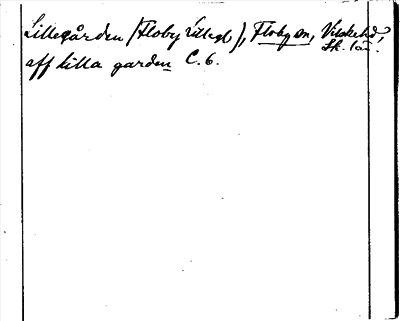 Lillegården (Floby Lillegd), Floby sn, Vilske hd,
Sk. län.
aff lilla garden C. 6.